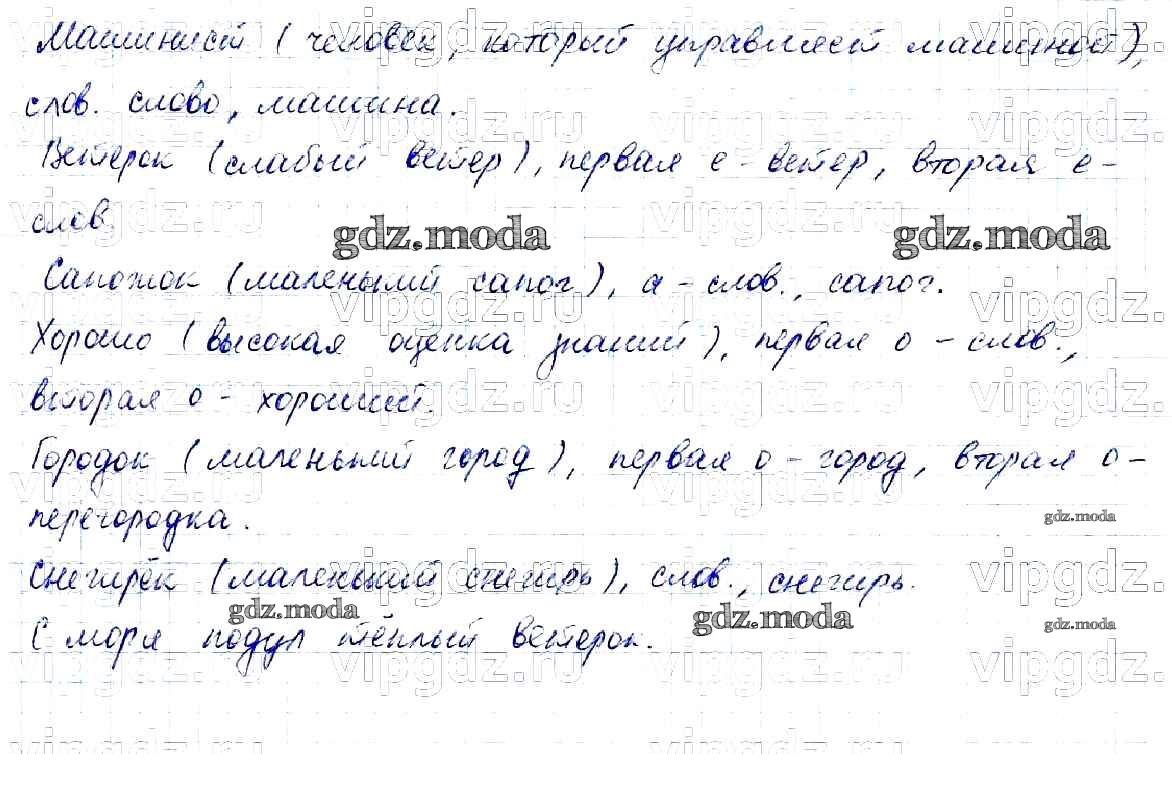 Машинист (человек, который управляет машиной),
слов. слово, машина.
Ветерок (слабый ветер), первая е - ветер, вторая е -
слов.
gdz.moda gdz.moda
Сапожок (маленький сапог), а - слов., сапог.
Хорошо (высокая оценка знаний), первая о - слов.,
вторая о - хороший.
Городок (маленький город), первая о - город, вторая о -
перегородка.
gdz.moda
Снегирёк (маленький снегирь), слов., снегирь.
gdz.moda gdz.moda gdz.moda
С моря подул тёплый ветерок.
vipgdz.ru vipgdz.ru vipgdz.ru vipgdz.